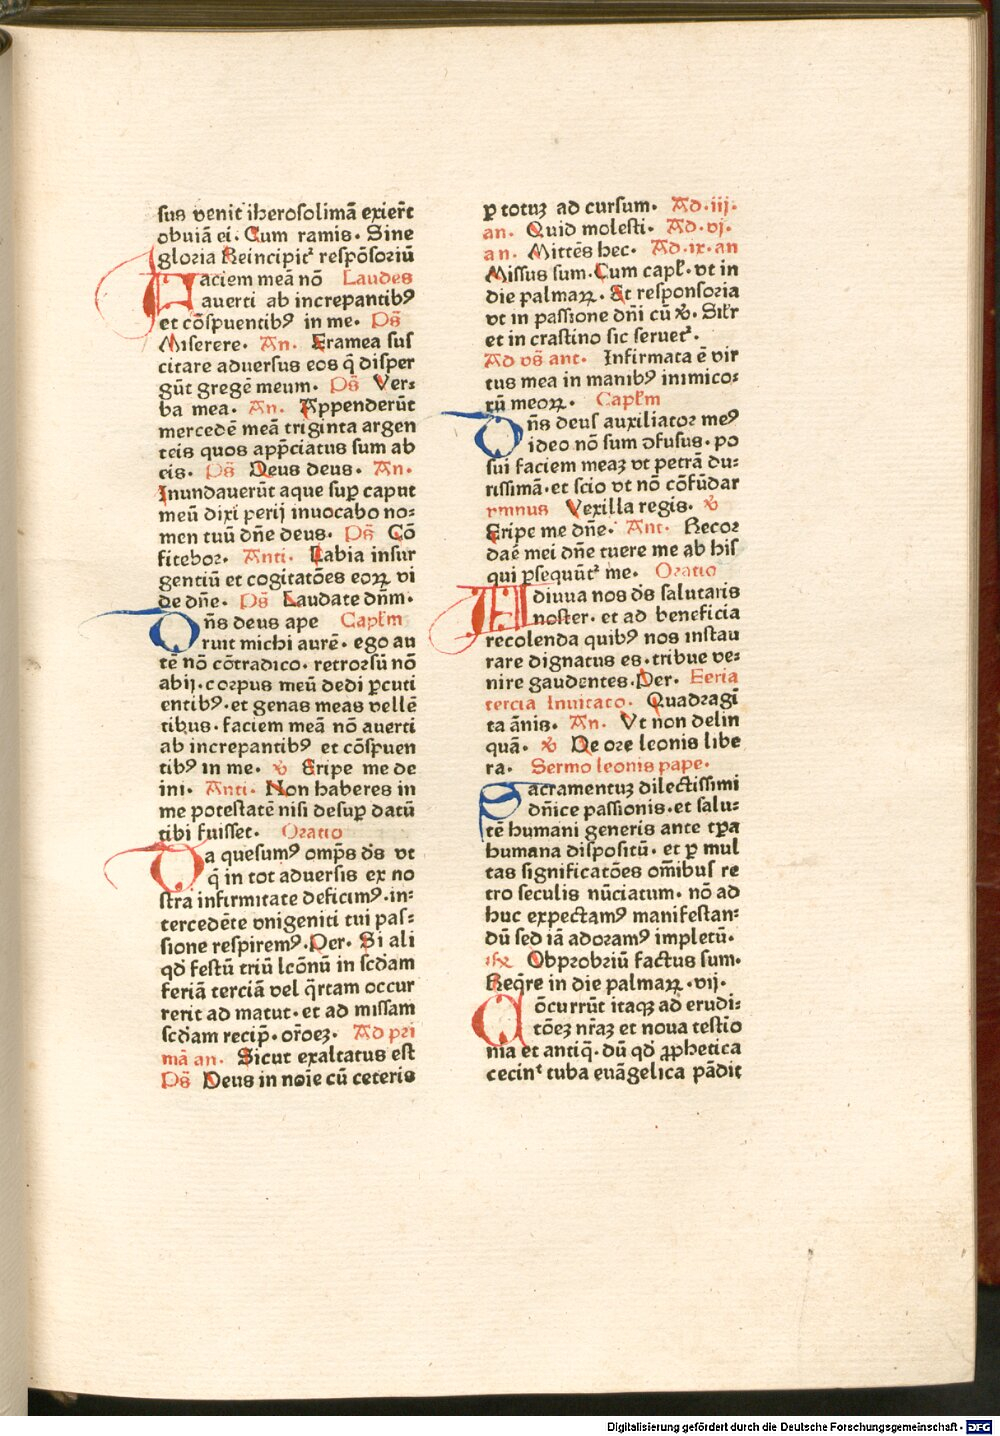 sus venit iherosolimã exier̃t
obuiã ei. Cum ramis. Sine
gloria Reincipit᷑ respõsoriũ
Faciem meã nõ Laudes
auerti ab increpantibꝰ
et cõspuentibꝰ in me. Ps̃
Miserere. An. Framea sus
citare aduersus eos q̃ disper
gũt gregẽ meum. Ps̃ Ver⸗
ba mea. An. Appenderũt
mercedẽ meã triginta argen
teis quos app̃ciatus sum ab
eis. Ps̃ Deus deus. An.
Inundauerũt aque suꝑ caput
meũ dixi perij inuocabo no⸗
men tuũ dñe deus. Ps̃ Cõ
fitebor. Anti. Labia insur
gentiũ et cogitatões eoꝝ vi
de dñe. Ps̃ Laudate dñm.
Dñs deus ape Capl̃m
ruit michi aurẽ. ego au
tẽ nõ cõtradico. retrorsũ nõ
abij. corpus meũ dedi ꝑcuti
entibꝰ. et genas meas vellẽ
tibus. faciem meã nõ auerti
ab increpantibꝰ et cõspuen
tibꝰ in me. ꝟ Eripe me de
ini. Anti. Non haberes in
me potestatẽ nisi desuꝑ datũ
tibi fuisset. Oratio
Da quesumꝰ omp̃s ds̃ vt
q̃ in tot aduersis ex no
stra infirmitate deficimꝰ. in⸗
tercedẽte vnigeniti tui pas⸗
sione respiremꝰ. Per. Si ali
qd̃ festũ triũ lcõnũ in scd̃am
feriã terciã vel q̃rtam occur
rerit ad matut. et ad missam
scd̃am recip̃. or̃oeʒ. Ad pri
mã an. Sicut exaltatus est
Ps̃ Deus in noĩe cũ ceteris
ꝑ totuʒ ad cursum. Ad.iij.
an. Quid molesti. Ad.vj.
an. Mittẽs hec. Ad.ix.an
Missus sum. Cum capl̃. vt in
die palmaꝝ. Et responsoria
vt in passione dñi cũ ꝟ. Sil̃r
et in crastino sic seruet᷑.
Ad vs̃ ant. Infirmata ẽ vir
tus mea in manibꝰ inimico⸗
rũ meoꝝ. Capl̃m
Dñs deus auxiliator meꝰ
ideo nõ sum ↄfusus. po
sui faciem meaʒ vt petrã du⸗
rissimã. et scio vt nõ cõfũdar
ymnus Vexilla regis. ꝟ
Eripe me dñe. Ant. Recor
dare mei dñe tuere me ab his
qui ꝑsequũt᷑ me. Oratio
Adiuua nos ds̃ salutaris
noster. et ad beneficia
recolenda quibꝰ nos instau
rare dignatus es. tribue ve⸗
nire gaudentes. Per. Feria
tercia Inuitato. Quadragĩ
ta ãnis. An. Vt non delin
quã. ꝟ De ore leonis libe
ra. Sermo leonis pape.
Sacramentuʒ dilectissimi
dñice passionis. et salu⸗
tẽ humani generis ante tp̃a
humana dispositũ. et ꝑ mul
tas significatões om̃ibus re
tro seculis nũciatum. nõ ad
huc expectamꝰ manifestan⸗
dũ sed iã adoramꝰ impletũ.
Obprobriũ factus sum.
Req̃re in die palmaꝝ. vij.
Cõcurrũt itaqʒ ad erudi⸗
tõeʒ nr̃aʒ et noua testĩo
nia et antiq̃. dũ qd̃ ꝓphetica
cecin᷑ tuba euãgelica pãdit
Digitalisierung gefördert durch die Deutsche Forschungsgemeinschaft - DFG